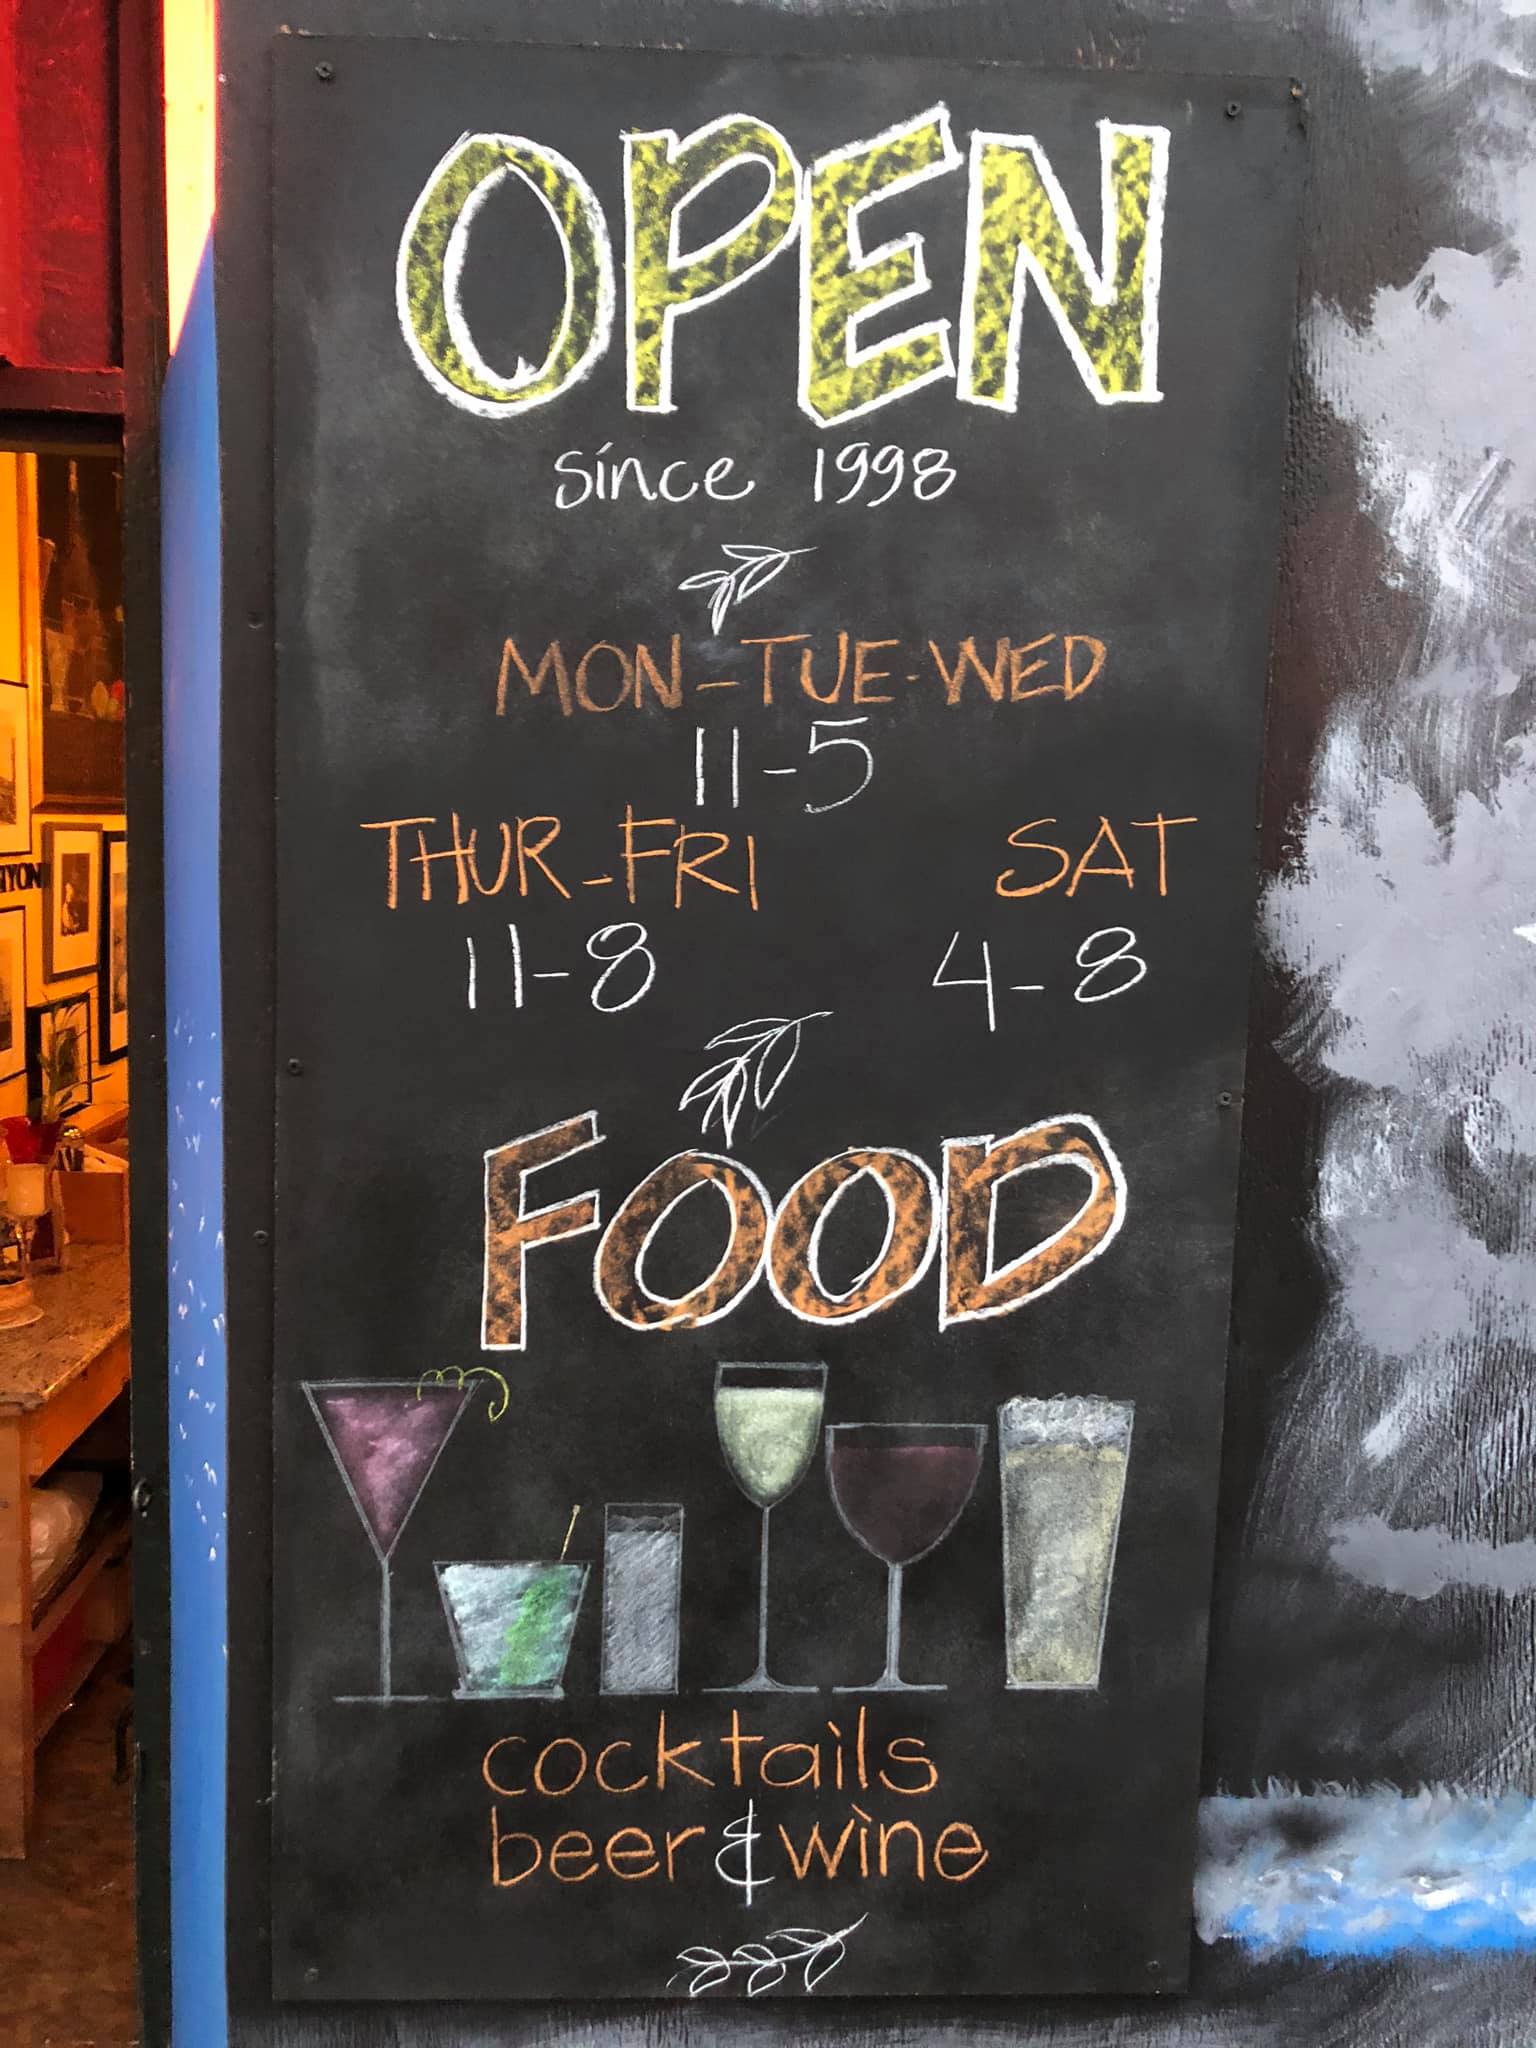 OPEN
since 1998
MON-TUE-WED
11-5
THUR-FRI SAT
11-8 4-8
FOOD
cocktails
beer & wine